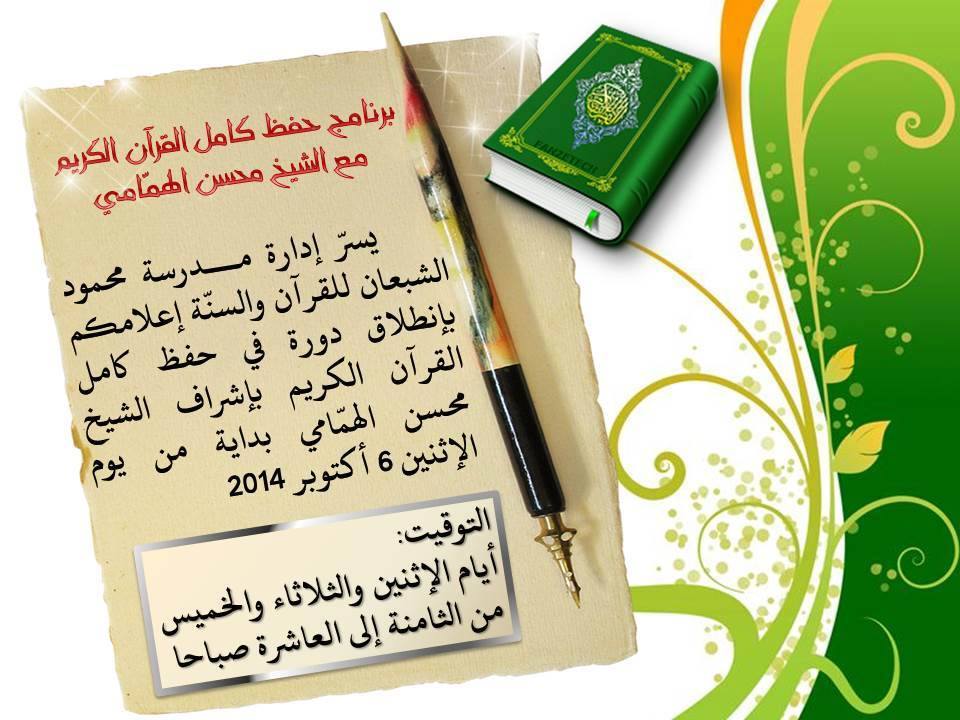 برنامج حفظ كامل القرآن الكريم
مع الشيخ محسن الهمّامي
يسرّ إدارة مـــدرسة محمود
الشبعان للقرآن والسنّة إعلامكم
بإنطلاق دورة في حفظ كامل
القرآن الكريم بإشراف الشيخ
محسن الهمّامي بداية من يوم
الإثنين 6 أكتوبر 2014
التوقيت:
أيام الإثنين والثلاثاء والخميس
من الثامنة إلى العاشرة صباحا